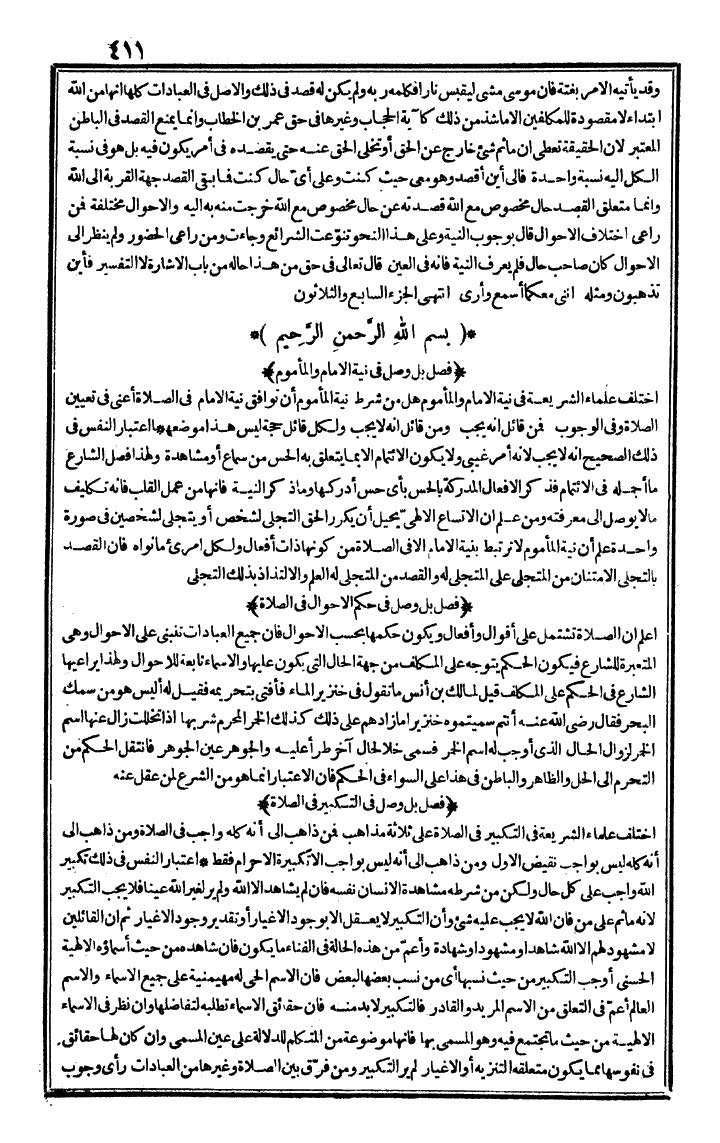 ٤١١
وقد يأتيه الامر بغتة فان موسى مشى ليقبس نارا فكلمه ربه ولم يكن له قصد فى ذلك والاصل فى العبادات كلها انها من الله
ابتداء لا مقصودة للمكلفين الا ما شذ من ذلك كآية الحجاب وغيرها فى حق عمر بن الخطاب وانما يمنع القصد فى الباطن
المعتبر لان الحقيقة تعطى ان ماثم شئ خارج عن الحق أو تخلى الحق عنه حتى يقصده فى أمر يكون فيه بل هو فى نسبة
الكل اليه نسبة واحدة فالى أين أقصد وهو معى حيث كنت وعلى أىّ حال كنت فما بقى القصد جهة القربة الى الله
وانما متعلق القصد حال مخصوص مع الله قصدته عن حال مخصوص مع الله خرجت منه به اليه والاحوال مختلفة فمن
راعى اختلاف الاحوال قال بوجوب النية وعلى هذا النحو تنوّعت الشرائع وجاءت ومن راعى الحضور ولم ينظر الى
الاحوال كان صاحب حال فلم يعرف النية فانه فى العين قال تعالى فى حق من هذا حاله من باب الاشارة لا التفسير فأين
تذهبون ومثله اننى معكما أسمع وأرى انتهى الجزء السابع والثلاثون
*( بسم الله الرَّحمنِ الرَّحِيم )*
﴿فصل بل وصل فى نية الامام والمأموم﴾
اختلف علماء الشريعة فى نية الامام والمأموم هل من شرط نية المأموم أن توافق نية الامام فى الصلاة أعنى فى تعيين
الصلاة وفى الوجوب فمن قائل انه يجب ومن قائل انه لا يجب ولكل قائل حجة ليس هذا موضعها * الاعتبار النفس فى
ذلك الصحيح انه لا يجب لانه أمر غيبى ولا يكون الائتمام الا بما يتعلق به الحس من سماع أو مشاهدة ولهذا فصل الشارع
ما أجمله فى الائتمام فذكر الافعال المدركة بالحس بأى حس أدركها وما ذكر النية فانها من عمل القلب فانه تكليف
ما لا يوصل الى معرفته ومن علم ان الاتساع الالهىّ يحيل أن يكرر الحق التجلى لشخص أو يتجلى لشخصين فى صورة
واحدة علم أن نية المأموم لا ترتبط بنية الامام الا فى الصلاة من كونها ذات أفعال ولكل امرئ ما نواه فان القصد
بالتجلى الامتنان من المتجلى على المتجلى له والقصد من المتجلى له العلم والالتذاذ بذلك التجلى
﴿فصل بل وصل فى حكم الاحوال فى الصلاة﴾
اعلم ان الصلاة تشتمل على أقوال وأفعال ويكون حكمها بحسب الاحوال فان جميع العبادات تنبنى على الاحوال وهى
المتعبرة للشارع فيكون الحكم يتوجه على المكلف من جهة الحال التى يكون عليها والاسماء تابعة للاحوال ولهذا يراعيها
الشارع فى الحكم على المكلف قيل لمالك بن أنس ما تقول فى خنزير الماء فأفتى بتحريمه فقيل له أليس هو من سمك
البحر فقال رضى الله عنه أنتم سميتموه خنزيرا ما زادهم على ذلك كذلك الخمر المحرم شربها اذا تخللت زال عنها اسم
الخمر لزوال الحال الذى أوجب له اسم الخمر فسمى خلا لحال آخر طرأ عليه والجوهر عين الجوهر فانتقل الحكم من
التحرم الى الحل والظاهر والباطن فى هذا على السواء فى الحكم فان الاعتبار انما هو من الشرع لمن عقل عنه
﴿فصل بل وصل فى التكبير فى الصلاة﴾
اختلف علماء الشريعة فى التكبير فى الصلاة على ثلاثة مذاهب فمن ذاهب الى أنه كله واجب فى الصلاة ومن ذاهب الى
أنه كله ليس بواجب نقيض الاول ومن ذاهب الى أنه ليس بواجب الا تكبيرة الاحرام فقط * اعتبار النفس فى ذلك تكبير
الله واجب على كل حال ولكن من شرطه مشاهدة الانسان نفسه فان لم يشاهد الا الله ولم ير لغير الله عينا فلا يجب التكبير
لانه ماثم على من فان الله لا يجب عليه شئ وأن التكبير لا يعقل الا بوجود الاغيار أو تقدير وجود الاغيار ثم ان القائلين
لا مشهود لهم الا الله شاهدا ومشهودا وشهادة وأعمّ من هذه الحالة فى الفناء ما يكون فان شاهده من حيث أسماؤه الالهية
الحسنى أوجب التكبير من حيث نسبها أى من نسب بعضها البعض فان الاسم الحى له مهيمنية على جميع الاسماء والاسم
العالم أعمّ فى التعلق من الاسم المريد والقادر فالتكبير لا بد منه فان حقائق الاسماء تطلبه لتفاضلها وان نظر فى الاسماء
الالهية من حيث ما تجتمع فيه وهو المسمى بها فانها موضوعة من المتكلم للدلالة على عين المسمى وان كان لها حقائق
فى نفوسها مما يكون متعلقه التنزيه أو الاغيار لم ير التكبير ومن فرّق بين الصلاة وغيرها من العبادات رأى وجوب